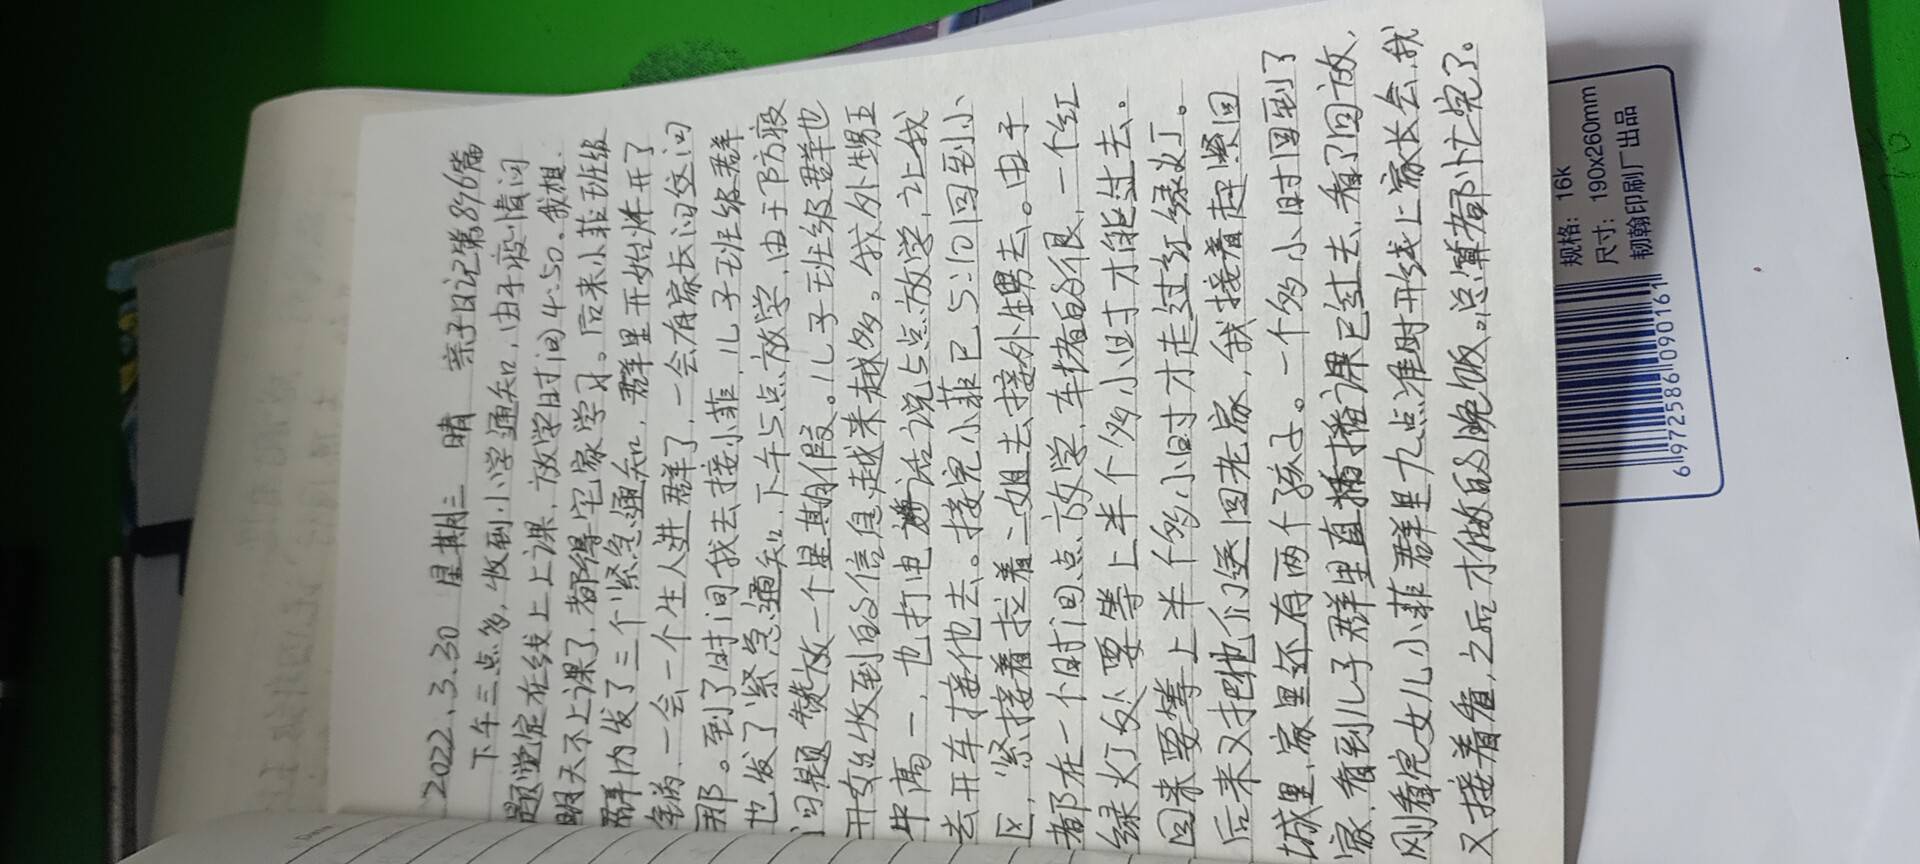 2022.3.30 星期三 晴 亲子日记第896篇
下午三点多,收到小学通知,由于疫情问
题,定在线上上课,放学时间4:50。我想,
明天不上课了,都得宅家学习。后来小菲班级
群内发了三个紧急通知,群里开始炸开了
锅,一会一个生人进群了,一会有家长问这问
那。到了时间我去接小菲,儿子班级群
也发了紧急通知,下午5点放学,由于防疫
问题,暂放一个星期假。儿子班级群也
开始收到的信息越来越多。我外甥王
高一,也打电话说5点放学,让我
去开车接他去。接完小菲已5:10回到小
区,紧接着拉着二姐去接外甥去。由于
都在一个时间点放学,车堵的很,一个红
绿灯处要等上半个多小时才能过去。
回来要等上半个多小时才走过红绿灯。
后来又把他们送回老家,我接着赶紧回
城里,家里还有两个孩子。一个多小时回到了
家,看到儿子群里直播课已过去,看了回放,
刚看完女儿小菲群里九点准时开线上家长会,我
又接着看,之后才做的晚饭。总算都忙完了。
规格: 16k
尺寸: 190x260mm
韧翰印刷厂出品
6 972586 090161